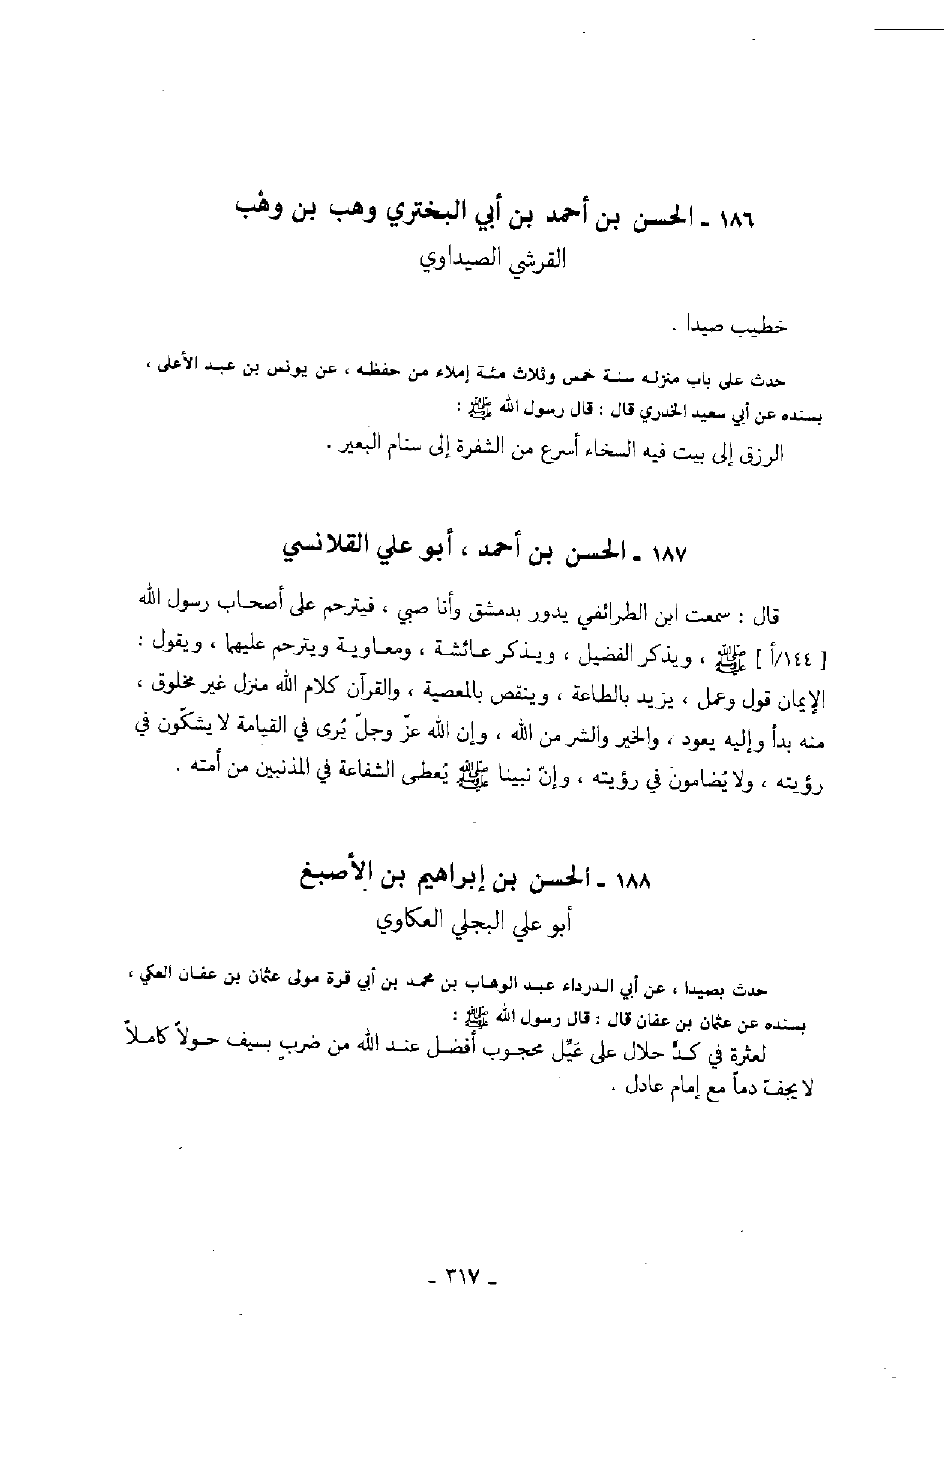 ١٨٦ ـ الحسن بن أحمد بن أبي البختري وهب بن وهْب
القرشي الصيداوي
خطيب صيدا .
حدث على باب منزله سنة خمس وثلاث مئة إملاء من حفظه ، عن يونس بن عبد الأعلى ،
بسنده عن أبي سعيد الخدري قال : قال رسول الله ﷺ :
الرزق إلى بيت فيه السخاء أسرع من الشفرة إلى سنام البعير .
١٨٧ ـ الحسن بن أحمد ، أبو علي القلانسي
قال : سمعت ابن الطرائفي يدور بدمشق وأنا صبي ، فيترحم على أصحاب رسول الله
[ ١٤٤/أ ] ﷺ ، ويذكر الفضيل ، ويذكر عائشة ، ومعاوية ويترحم عليها ، ويقول :
الإيمان قول وعمل ، يزيد بالطاعة ، وينقص بالمعصية ، والقرآن كلام الله منزل غير مخلوق ،
منه بدأ وإليه يعود ، والخير والشر من الله ، وإن الله عزّ وجلّ يُرى في القيامة لا يشكّون في
رؤيته ، ولا يُضامون في رؤيته ، وإنّ نبينا ﷺ يُعطى الشفاعة في المذنبين من أمته .
١٨٨ ـ الحسن بن إبراهيم بن الأصبغ
أبو علي البجلي العكاوي
حدث بصيدا ، عن أبي الدرداء عبد الوهاب بن محمد بن أبي قرة مولى عثمان بن عفان العكي ،
بسنده عن عثمان بن عفان قال : قال رسول الله ﷺ :
لعثرة في كدّ حلال على عَيِّل محجوب أفضل عند الله من ضربٍ بسيف حولاً كاملاً
لا يجفّ دماً مع إمام عادل .
ـ ٣١٧ ـ